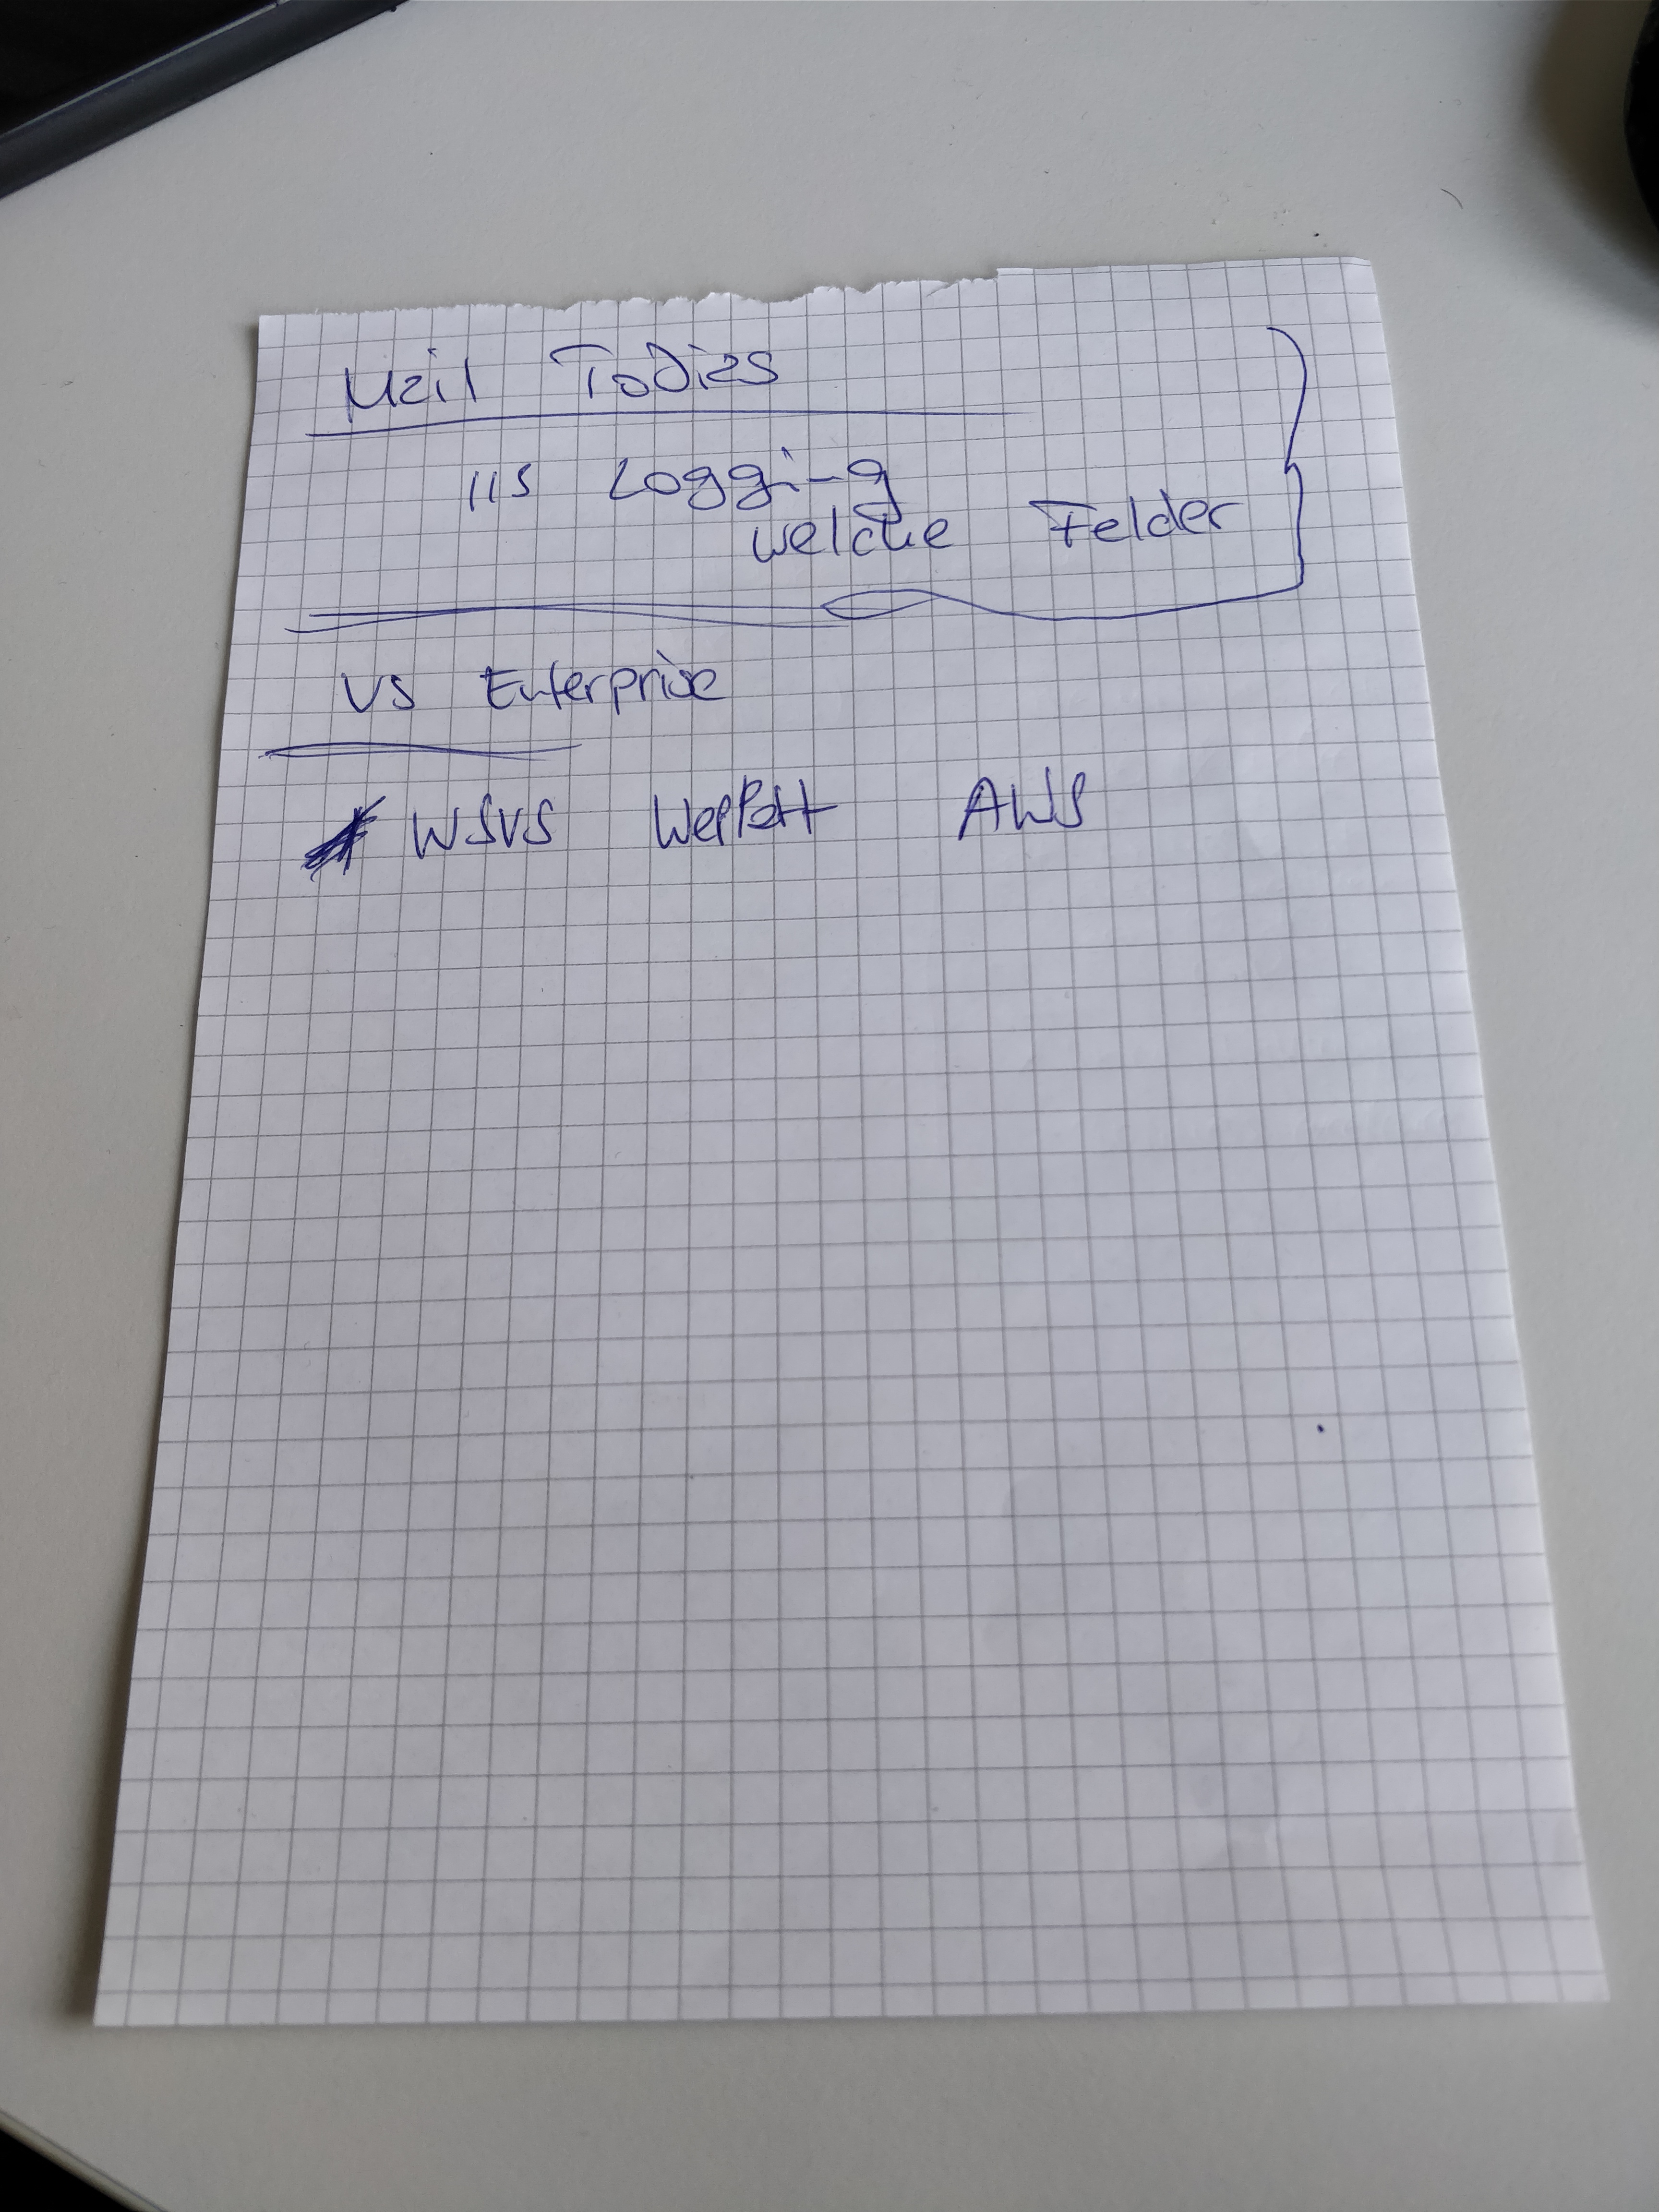 Mail Tobias
IIS Logging
welche Felder
VS Enterprise
WSUS AWS